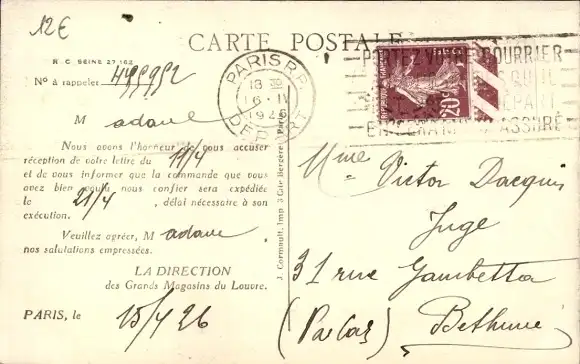 12€
CARTE POSTALE
R. C. SEINE 27 162
Nº à rappeler
M adame
Nous avons l'honneur de vous accuser
réception de votre lettre du 11/4
et de vous informer que la commande que vous
avez bien voulu nous confier sera expédiée
le 21/4, délai nécessaire à son
exécution.
Veuillez agréer, M adame
nos salutations empressées.
LA DIRECTION
des Grands Magasins du Louvre.
PARIS, le 15/4 26
J. Cormault, Imp. 3 Cité Bergère, Paris
PARIS R.P.
13 30
16 · IV
DÉPART
COURRIER
ASSURÉ
REPUBLIQUE FRANÇAISE
20c
Mme Victor Dacquin
Juge
31 rue Gambetta
(Pas Cal) Bethune